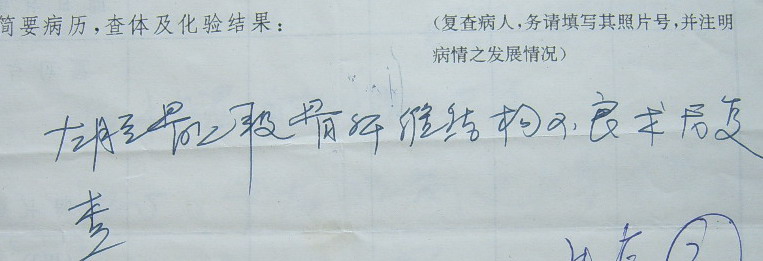 简要病历，查体及化验结果：
（复查病人，务请填写其照片号，并注明
病情之发展情况）
左胫骨上段骨纤维结构不良术后复
查